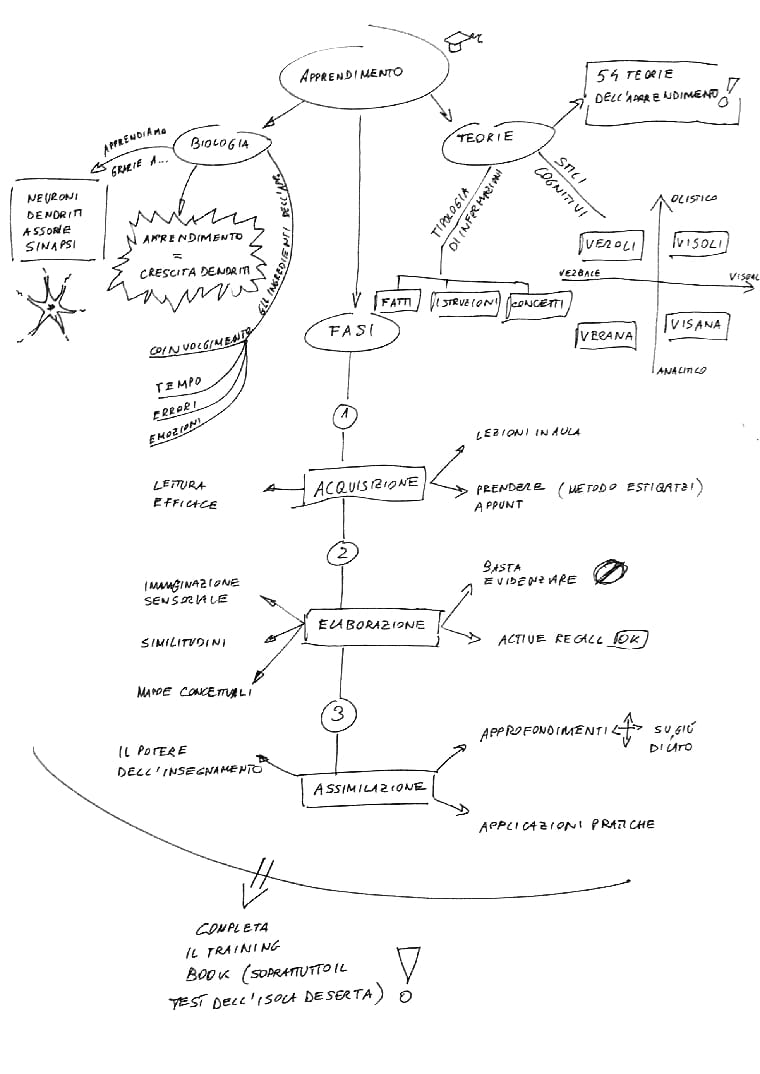 APPRENDIMENTO
BIOLOGIA
APPRENDIAMO
GRAZIE A...
NEURONI
DENDRITI
ASSONE
SINAPSI
APPRENDIMENTO
=
CRESCITA DENDRITI
GLI INGREDIENTI DELL'APP.
COINVOLGIMENTO
TEMPO
ERRORI
EMOZIONI
TEORIE
54 TEORIE
DELL'APPRENDIMENTO!
TIPOLOGIA
DI INFORMAZIONI
FATTI
ISTRUZIONI
CONCETTI
STILI
COGNITIVI
OLISTICO
VEROLI
VISOLI
VERBALE
VISUAL
VERANA
VISANA
ANALITICO
FASI
1
ACQUISIZIONE
LETTURA
EFFICACE
LEZIONI IN AULA
PRENDERE (METODO ESTIGATZI)
APPUNT
2
ELABORAZIONE
IMMAGINAZIONE
SENSORIALE
SIMILITUDINI
MAPPE CONCETTUALI
BASTA
EVIDENZIARE
ACTIVE RECALL OK
3
ASSIMILAZIONE
IL POTERE
DELL'INSEGNAMENTO
APPROFONDIMENTI
SU, GIÙ
DI LATO
APPLICAZIONI PRATICHE
COMPLETA
IL TRAINING
BOOK (SOPRATTUTTO IL
TEST DELL'ISOLA DESERTA)!